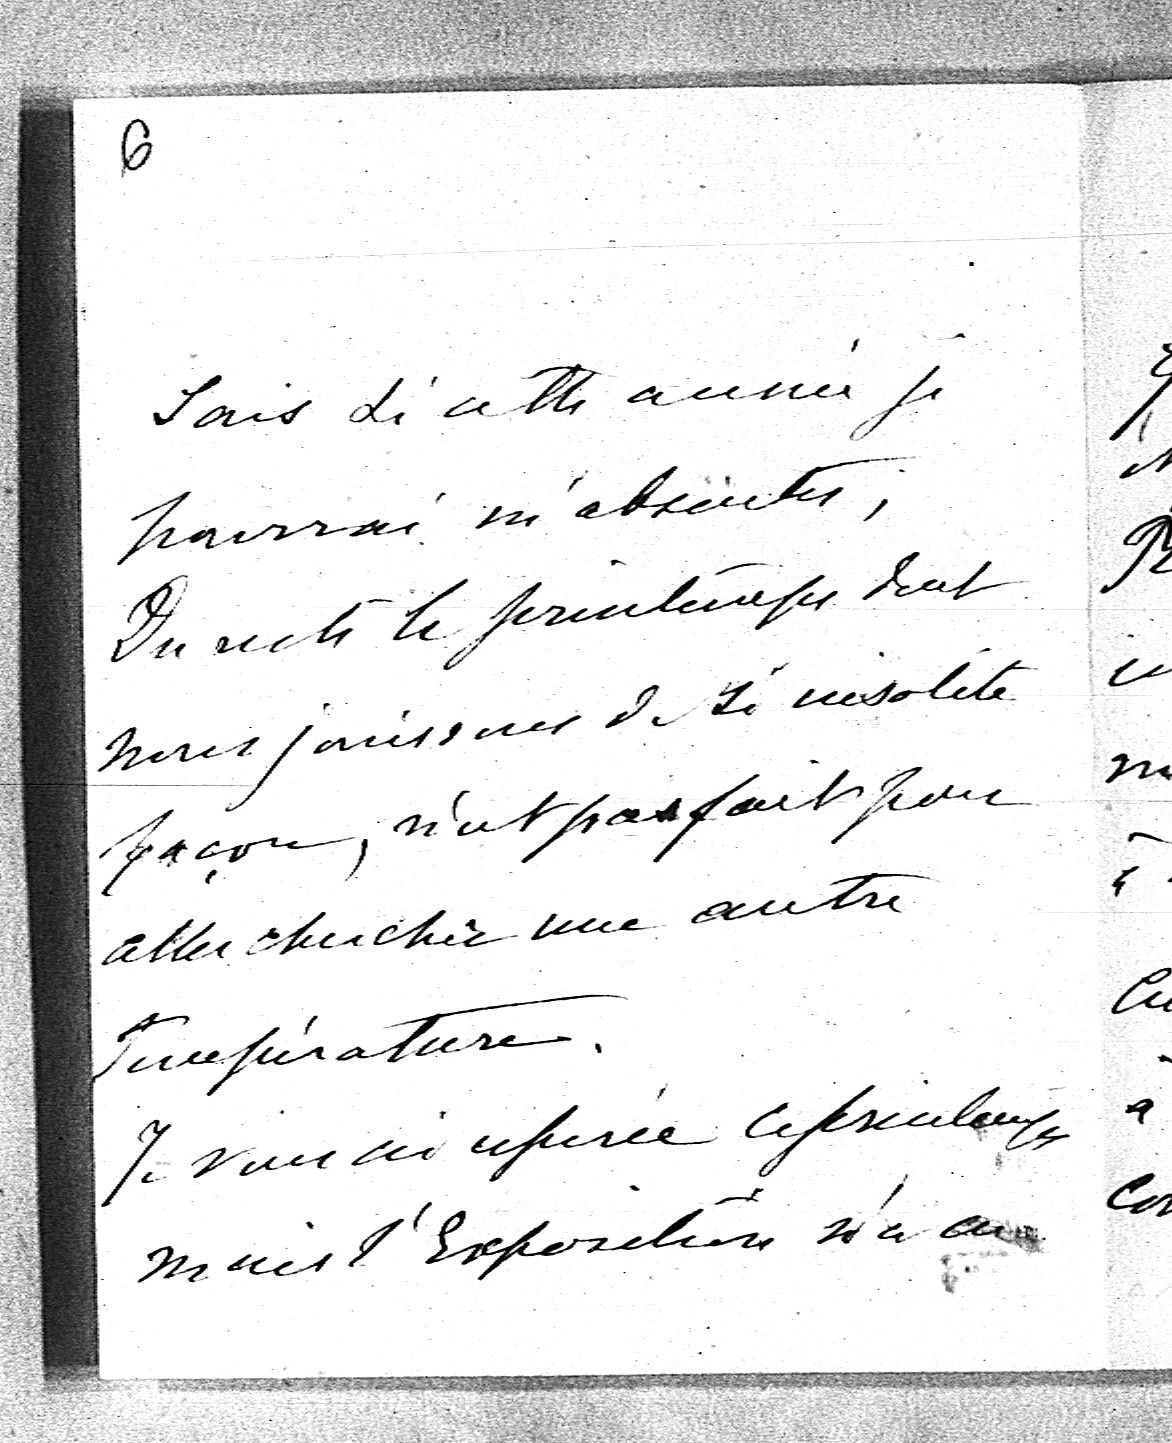 6
sais si cette année je
pourrai m'absenter,
Du reste le printemps dont
nous jouissons de si insolite
façon, n'est pas fait pour
aller chercher une autre
Température.
Je vous ai espérée ce printemps
mais l'Exposition n'a